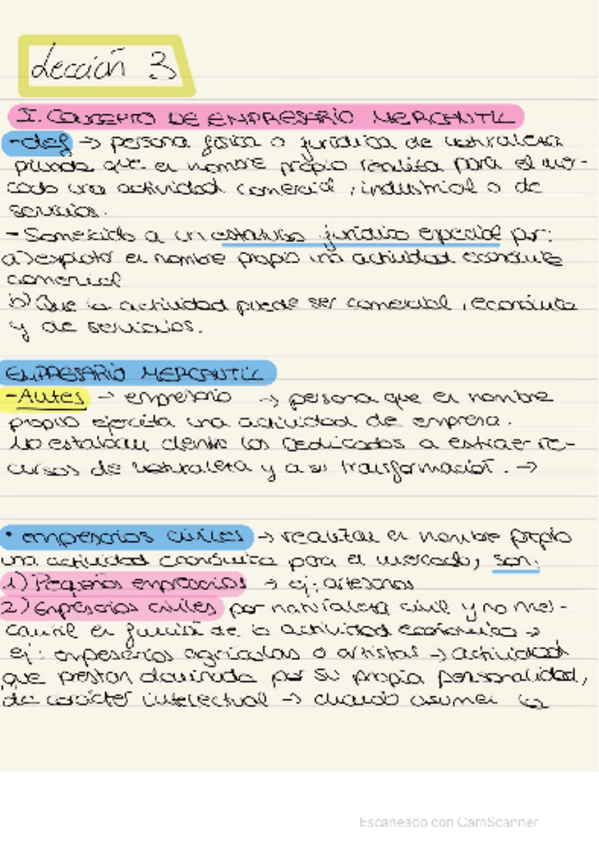 Lección 3
I. CONCEPTO DE EMPRESARIO MERCANTIL
-def → persona física o jurídica de naturaleza
privada que en nombre propio realiza para el mer-
cado una actividad comercial, industrial o de
servicios.
- Sometido a un estatuto jurídico especial por:
a) explotar en nombre propio una actividad económica
comercial
b) Que la actividad puede ser comercial, económica
y de servicios.
EMPRESARIO MERCANTIL
-Antes → empresario → persona que en nombre
propio ejercita una actividad de empresa.
No estaban dentro los dedicados a extraer re-
cursos de naturaleza y a su transformación. →
• empresarios civiles → realizan en nombre propio
una actividad económica para el mercado, son:
1) Pequeños empresarios → ej: artesanos
2) Empresarios civiles por naturaleza civil y no mer-
cantil en función de la actividad económica →
ej: empresarios agrícolas o artistas → actividad
que prestan dominada por su propia personalidad,
de carácter intelectual → cuando asumen
Escaneado con CamScanner